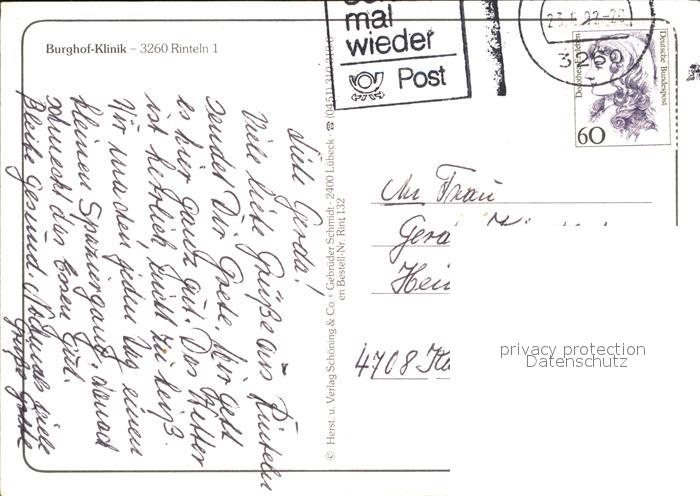 Burghof-Klinik – 3260 Rinteln 1
mal
wieder
Post
3260
Deutsche Bundespost
60
Liebe Gerda!
Viele liebe Grüße aus Rinteln
sendet Dir Grete. Mir geht
es hier ganz gut. Das Wetter
ist herrlich, nicht zu heiß.
Wir machen jeden Tag einen
kleinen Spaziergang, danach
schmeckt das Essen gut.
Bleibe gesund. Nochmals viele
Grüße Grete
© Herst. u. Verlag Schöning & Co + Gebrüder Schmidt · 2400 Lübeck · ☎ (0451)
en Bestell-Nr. Rint 132
An Frau
Gerd
Hei
4708 Ka
privacy protection
Datenschutz